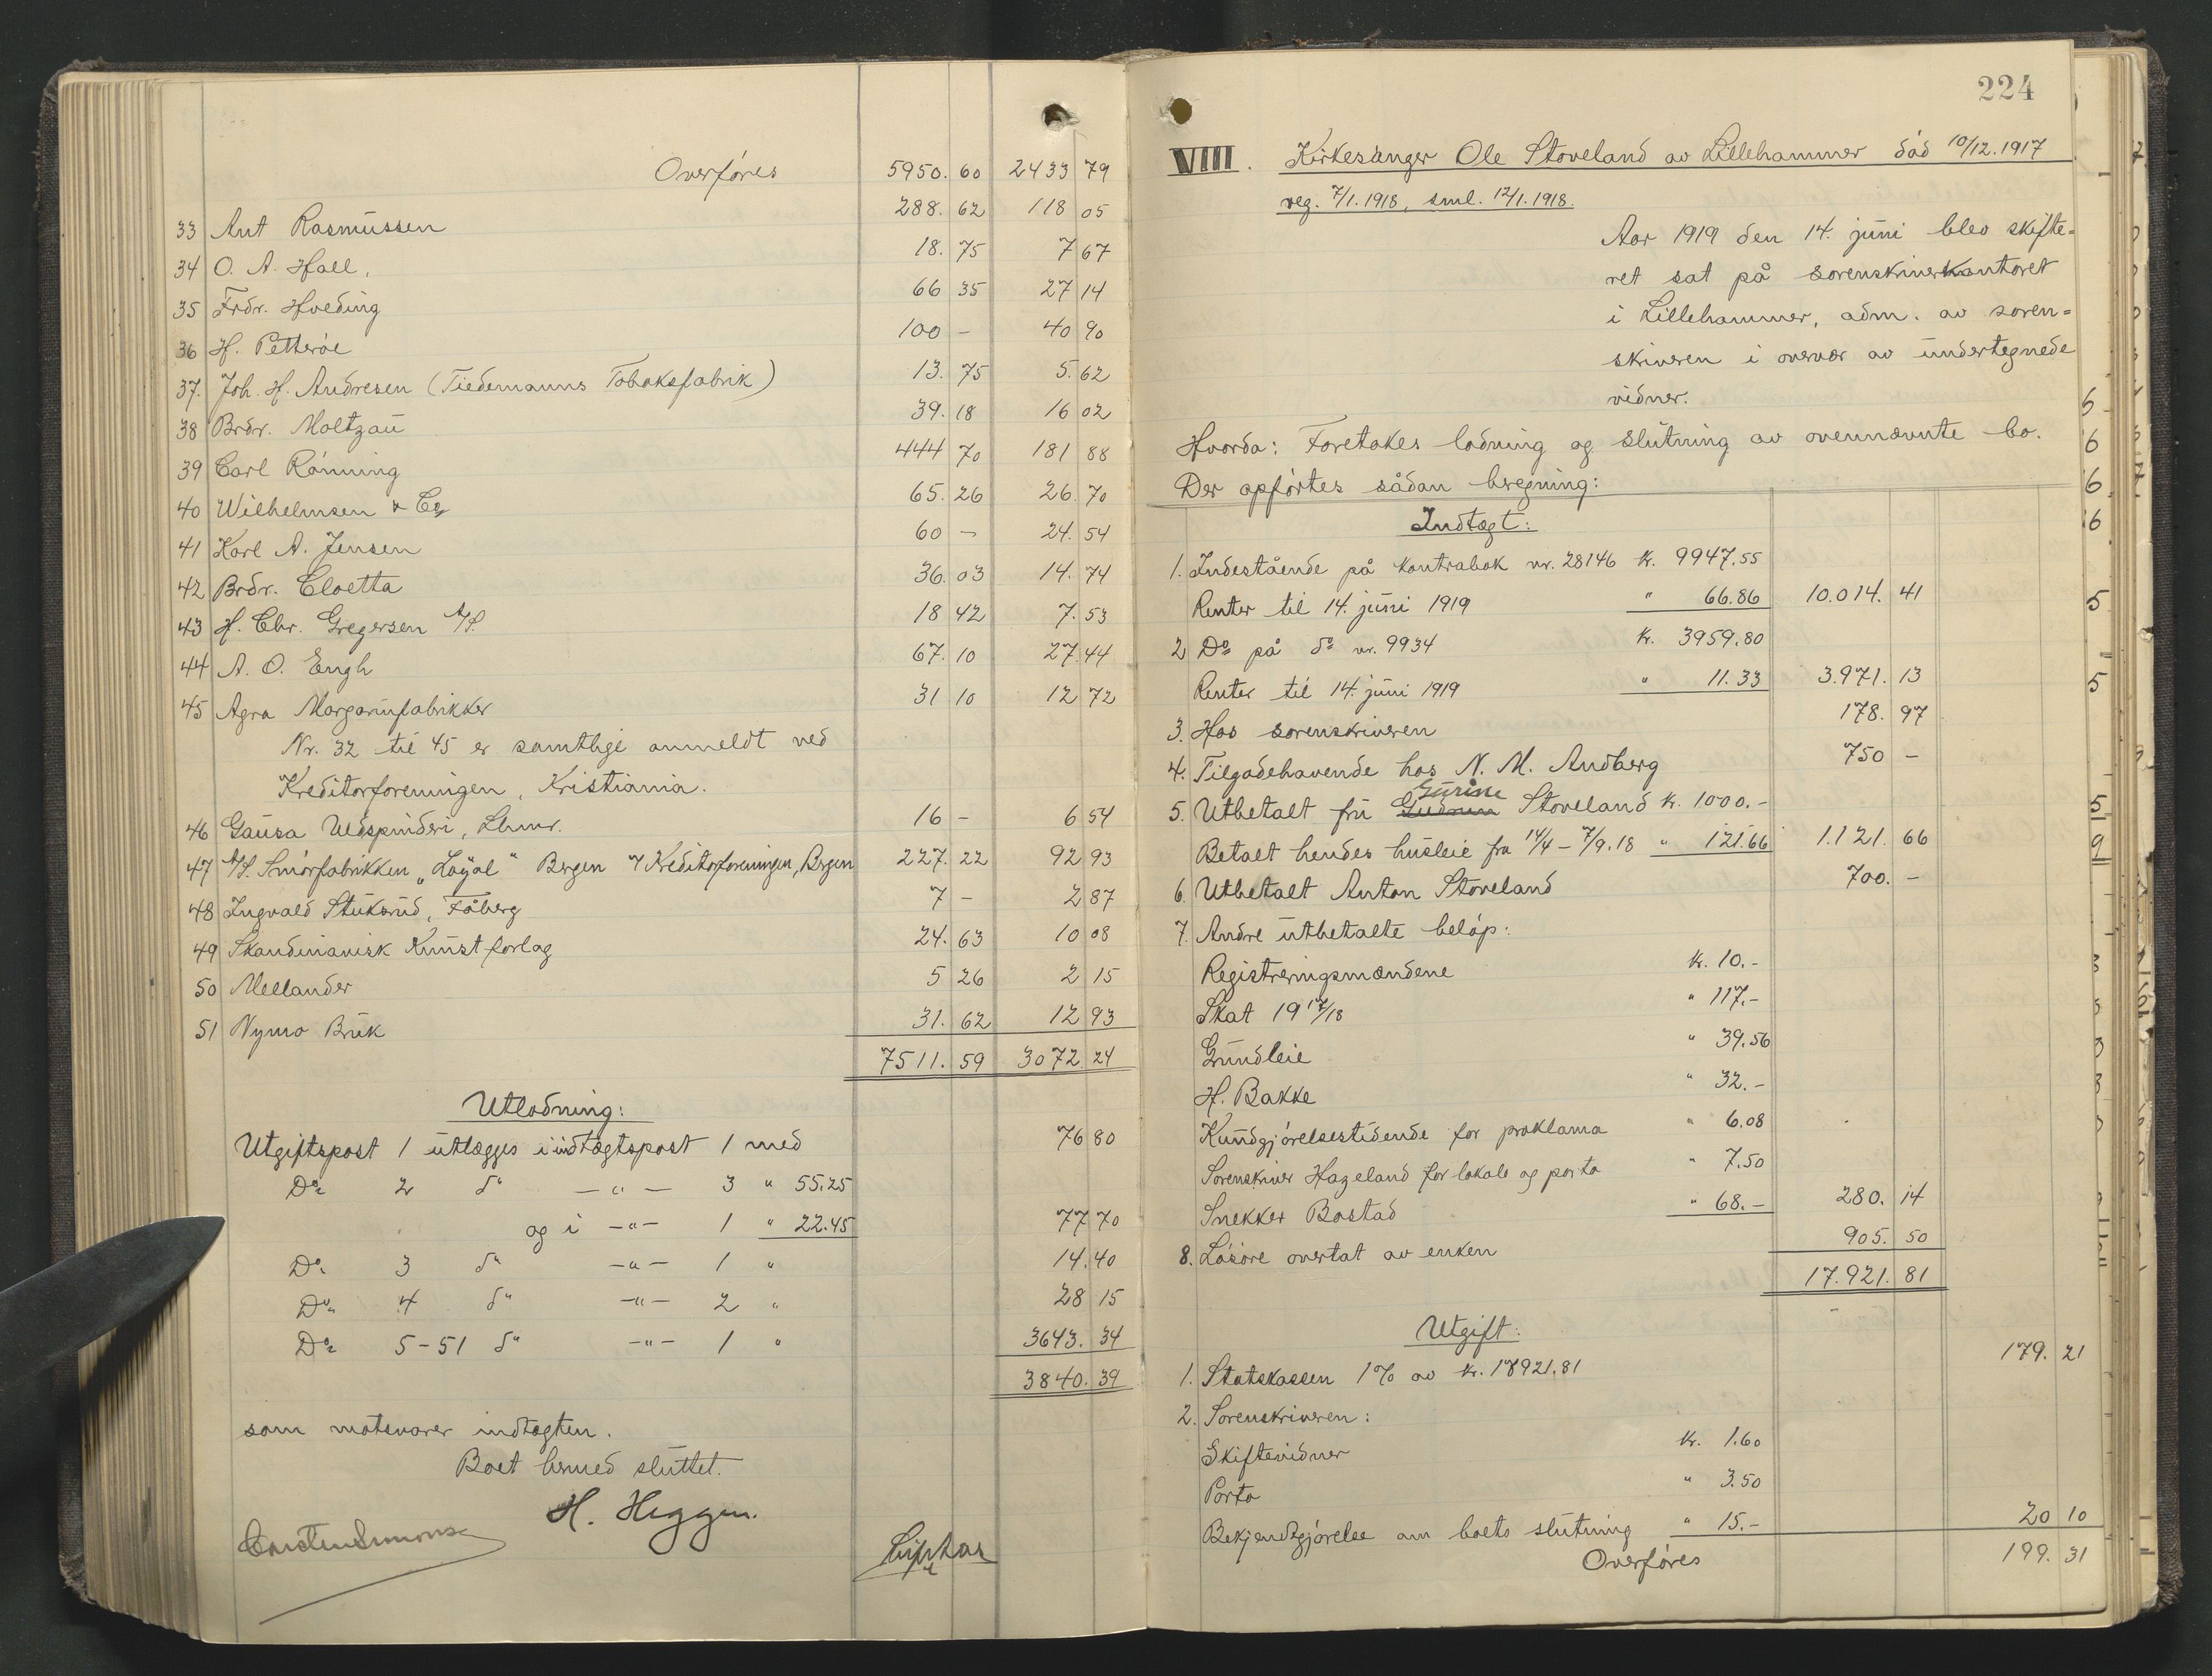 Overføres 5950.60 2433 79
33 Ant Rasmussen 288.62 118 05
34 O. A. Hall. 18.75 7 67
35 Frdr. Hveding 66 35 27 14
36 H. Petterøe 100 - 40 90
37. Joh. H. Andresen (Tiedemanns Tobaksfabrik) 13.75 5.62
38 Brdr. Moltzau 39.18 16 02
39 Carl Rønning 444 70 181 88
40 Wilhelmsen & Co 65.26 26.70
41 Karl A. Jensen 60 - 24.54
42 Brdr. Cloetta 36.03 14.74
43 H. Chr. Gregersen A/S. 18 42 7.53
44 A. O. Engh 67.10 27.44
45 Agra Margarinfabrikker 31 10 12 72
Nr. 32 til 45 er samtlige anmeldt ved
Kreditorforeningen, Kristiania.
46 Gausa Uldspinderi, Lhmr. 16 - 6 54
47 A/S. Smørfabrikken „Loyal" Bergen v/Kreditorforeningen, Bergen 227.22 92 93
48 Ingvald Stuksrud, Fåberg 7 - 2 87
49 Skandinavisk Kunstforlag 24.63 10 08
50 Mellander 5 26 2 15
51 Nymo Bruk 31.62 12 93
7511.59 3072.24
Utlodning:
Utgiftspost 1 utlægges i indtægtspost 1 med 76 80
Do 2 do —"— 3 " 55.25
og i —"— 1 " 22.45 77 70
Do 3 do —"— 1 " 14.40
Do 4 do —"— 2 " 28 15
Do 5-51 do —"— 1 " 3643.34
3840.39
som motsvarer indtægten.
Boet hermed sluttet.
H. Heggen.
VIII. Kirkesanger Ole Stoveland av Lillehammer død 10/12.1917
reg. 7/1.1918, sml. 12/1.1918.
Aar 1919 den 14. juni blev skifte-
ret sat på sorenskriverkontoret
i Lillehammer, adm. av soren-
skriveren i overvær av undertegnede
vidner.
Hvorda: Foretokes lodning og slutning av ovennævnte bo.
Der opførtes sådan bregning:
Indtægt:
1. Indestående på kontrabok nr. 28146 kr. 9947.55
Renter til 14. juni 1919 " 66.86 10.014.41
2 Do på do nr. 9934 kr. 3959.80
Renter til 14. juni 1919 " 11.33 3.971.13
3. Hos sorenskriveren 178.97
4. Tilgodehavende hos N. M. Andberg 750 -
Gurine
5. Utbetalt fru Gudrun Stoveland kr. 1000.-
Betalt hendes husleie fra 14/4 - 7/9.18 " 121.66 1.121.66
6. Utbetalt Anton Stoveland 700.-
7. Andre utbetalte beløp:
Registreringsmændene kr. 10.-
Skat 1917/18 " 117.-
Grundleie " 39.56
H. Bakke " 32.-
Kundgjørelsestidende for proklama " 6.08
Sorenskriver Hazeland for lokale og porto " 7.50
Snekker Bostad " 68.- 280.14
8. Løsøre overtat av enken 905.50
17.921.81
Utgift:
1. Statskassen 1% av kr. 17921.81 179.21
2. Sorenskriveren:
Skiftevidner kr. 1.60
Porto " 3.50
Bekjendtgjørelse om boets slutning " 15.- 20 10
Overføres 199.31
224